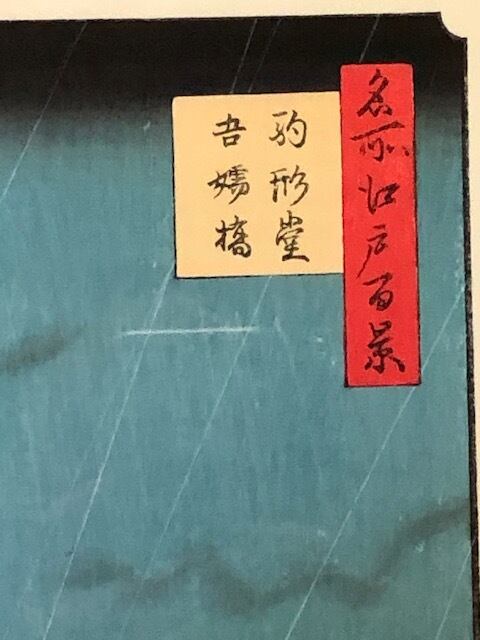 名所江戸百景
駒形堂
吾嬬橋